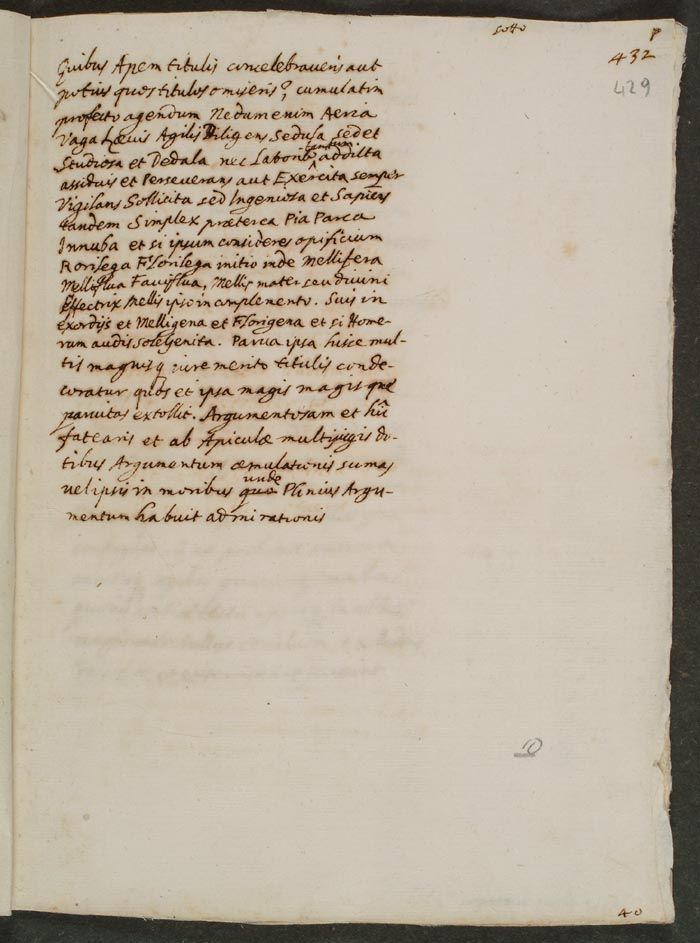 sotto
p
432
429
Quibus Apem titulis concelebraveris aut
potius quos titulos omiseris?, cumulatim
profecto agendum Nedum enim Aeria
Vaga Lævis Agilis Diligens Sedula sed et
tantum
Studiosa et Dedala nec Laborib addicta
assiduis et Perseverans aut Exercita semper
Vigilans Sollicita sed Ingeniosa et Sapiens
tandem Simplex præterea Pia Parca
Innuba et si ipsum consideres opificium
Rorilega Florilega initio inde Mellifera
Melliflua Faviflua, Mellis mater seu divini
Effectrix Mellis ipso in complemento. Suis in
exordijs et Melligena et Florigena et si Home-
rum audis soligenita. Parva ipsa hisce mul-
tis magnisq iure merito titulis conde-
coratur quos et ipsa magis magis que
parvitas extollit. Argumentosam et
fatearis et ab Apiculæ multijugis do-
tibus Argumentum æmulationis sumas
vel ipsis in moribus unde Plinius Argu-
mentum habuit admirationis
10
40